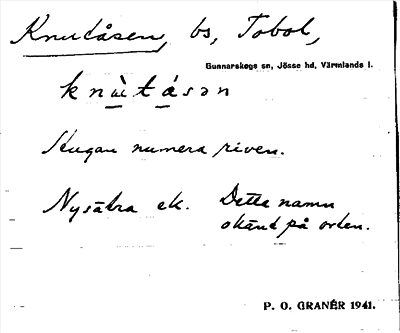 Knudåsen, bs, Tobol,
Gunnarskogs sn, Jösse hd, Värmlands l.
knùtásən
Stugan numera riven.
Nysätra ek. Detta namn
okänt på orten.
P. O. GRANÉR 1941.